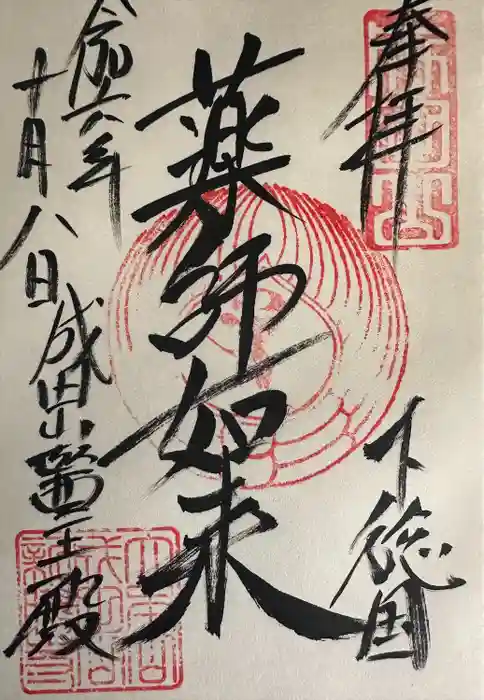 奉拝
下総国
薬師如来
令和六年
十月八日
成田山醫王殿